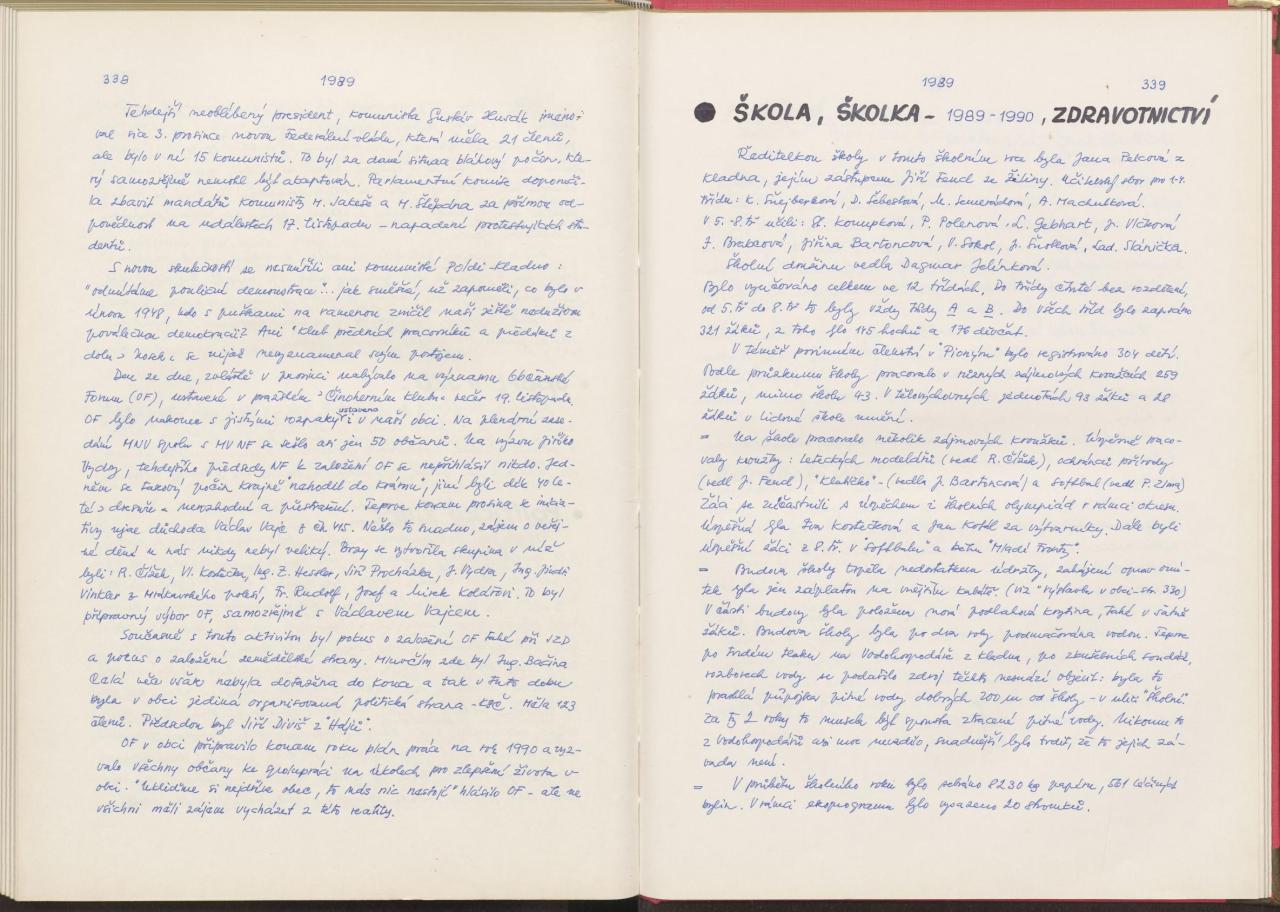 338 1989
Tehdejší neoblíbený president, komunista Gustáv Husák jmeno-
val sice 3. prosince novou Federální vládu, která měla 21 členů,
ale bylo v ní 15 komunistů. To byl za dané situace bláhový počin, kte-
rý samozřejmě nemohl být akceptován. Parlamentní komise doporuči-
la zbavit mandátů komunisty M. Jakeše a M. Štěpána za přímou od-
povědnost na událostech 17. listopadu - napadení protestujících stu-
dentů.
S novou skutečností se nesmířili ani komunisté Poldi-Kladno:
"odmítáme pouliční demonstrace"... jak směšné, už zapomněli, co bylo v
únoru 1948, kdo s puškami na ramenou zničil naši ještě nedužou
poválečnou demokracii? Ani "Klub předních pracovníků a předáků z
dolu se nijak nevyznamenal svým postojem.
Den ze dne, zvláště v prosinci nabývalo na významu Občanské
Forum (OF), ustavené v pražském "Činoherním klubu" večer 19. listopadu.
OF bylo nakonec s jistými rozpaky ustaveno i v naší obci. Na plenární zase-
dání MNV spolu s MV NF se sešlo asi jen 50 občanů. Na výzvu Jiřího
Vydry, tehdejšího předsedy NF k založení OF se nepřihlásil nikdo. Jed-
něm se takový počin krajně "nehodil do krámu", jiní byli díky 40 le-
té > < nerozhodní a přestrašení. Teprve koncem prosince se inicia-
tivy ujal důchodce Václav Vajc z čp. 415. Nešlo to snadno, zájem o veřej-
né dění u nás nikdy nebyl veliký. Brzy se vytvořila skupina v níž
byli: R. Čížek, Vl. Kostečka, Ing. Z. Hessler, Jiří Procházka, J. Vydra, Ing. Jindř.
Vinkler z Mrákavského polesí, Fr. Rudolf, Josef a Mirek Kolářovi. To byl
přípravný výbor OF, samozřejmě s Václavem Vajcem.
Současně s touto aktivitou byl pokus o založení OF také při JZD
a pokus o založení zemědělské strany. Mluvčím zde byl Ing. Bačina
Celá věc však nebyla dotažena do konce a tak v tuto dobu
byla v obci jediná organisovaná politická strana - KSČ. Měla 123
členů. Předsedou byl Jiří Diviš z "Hájů".
OF v obci připravilo koncem roku plán práce na rok 1990 a vyz-
valo všechny občany ke spolupráci na úkolech pro zlepšení života v
obci. "Ukliďme si nejdříve obec, to nás nic nestojí" hlásilo OF - ale ne
všichni měli zájem vycházet z této reality.
1989 339
● ŠKOLA, ŠKOLKA - 1989-1990, ZDRAVOTNICTVÍ
Ředitelkou školy v tomto školním roce byla Jana Pelcová z
Kladna, jejím zástupcem Jiří Fencl ze Žiliny. Učitelský sbor pro 1-4.
třídu: K. Šnejberková, D. Šebestová, M. Semerádová, A. Machutková.
V 5.-8. tř učili: H. Koumpková, P. Polenová, L. Gebhart, J. Vlčková
J. Brabcová, Jiřina Bartoncová, V. Sokol, J. Šustková, Lad. Slánička.
Školní družinu vedla Dagmar Jelínková.
Bylo vyučováno celkem ve 12 třídách. Do třídy čtvrté bez rozdělení,
od 5. tř do 8. tř to byly vždy třídy A a B. Do všech tříd bylo zapsáno
321 žáků, z toho šlo 145 hochů a 176 děvčat.
V téměř povinném členství v "Pionýru" bylo registrováno 304 dětí.
Podle průzkumu školy pracovalo v různých zájmových kroužcích 259
žáků, mimo školu 43. V tělovýchovných jednotách 93 žáků a 28
žáků v lidové škole umění.
= Na škole pracovalo několik zájmových kroužků. Úspěšně praco-
valy kroužky: leteckých modelářů (vedl R. Čížek), ochránců přírody
(vedl J. Fencl), "Klubíčko" - (vedla J. Bartoncová) a Softbal (vedl P. Zima)
Žáci se zúčastnili s úspěchem i školních olympiád v rámci okresu.
Úspěšná byla Iva Kostečková a Jan Kotal za výtvarníky. Dále byli
úspěšní žáci z 8. tř. v "Softballu" a běhu "Mladé Fronty".
= Budova školy trpěla nedostatkem údržby, zahájení oprav omí-
tek byla jen záplatou na vnějším kabátě (viz "Výstavba v obci-str. 330)
V části budovy byla položena nová podlahová krytina, také v šatně
žáků. Budova školy byla po dva roky podmáčována vodou. Teprve
po tvrdém tlaku na Vodohospodáře z Kladna, po zkušebních sondách,
rozborech vody se podařilo zdroj těchto nesnází objevit: byla to
prasklá přípojka pitné vody dobrých 200 m od školy - v ulici "Školní".
Za ty 2 roky to musela být spousta ztracené pitné vody. Nikomu to
z Vodohospodářů asi moc nevadilo, snadnější bylo tvrdit, že to jejich zá-
vada není.
= V průběhu školního roku bylo sebráno 8230 kg papíru, 561 léčivých
bylin. V rámci ekoprogramu bylo vysazeno 20 stromků.